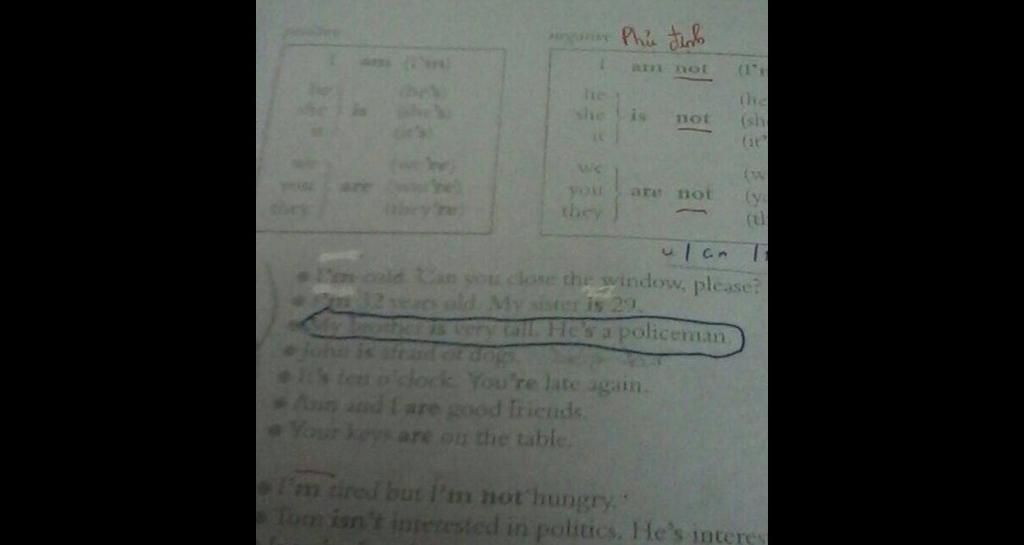 positive
negative Phủ định
I am (I'm)
I am not (I'm
he (he's)
she is (she's)
it (it's)
he (he
she is not (sh
it (it'
we (we're)
you are (you're)
they (they're)
we (w
you are not (yo
they (th
I'm cold. Can you close the window, please?
I'm 32 years old. My sister is 29.
My brother is very tall. He's a policeman.
John is afraid of dogs.
It's ten o'clock. You're late again.
Ann and I are good friends.
Your keys are on the table.
I'm tired but I'm not hungry.
Tom isn't interested in politics. He's interes